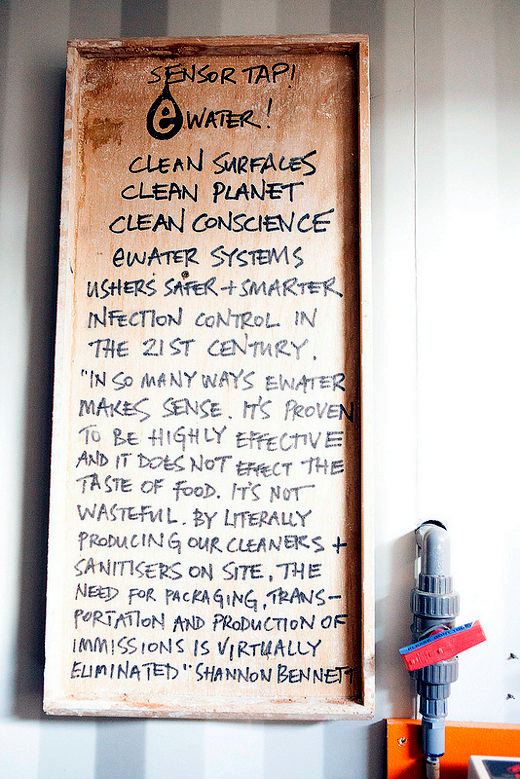 SENSOR TAP!
eWATER!
CLEAN SURFACES
CLEAN PLANET
CLEAN CONSCIENCE
eWATER SYSTEMS
USHERS SAFER + SMARTER
INFECTION CONTROL IN
THE 21ST CENTURY.
"IN SO MANY WAYS EWATER
MAKES SENSE. IT'S PROVEN
TO BE HIGHLY EFFECTIVE
AND IT DOES NOT EFFECT THE
TASTE OF FOOD. IT'S NOT
WASTEFUL. BY LITERALLY
PRODUCING OUR CLEANERS +
SANITISERS ON SITE, THE
NEED FOR PACKAGING, TRANS-
PORTATION AND PRODUCTION OF
IMMISSIONS IS VIRTUALLY
ELIMINATED" SHANNON BENNETT